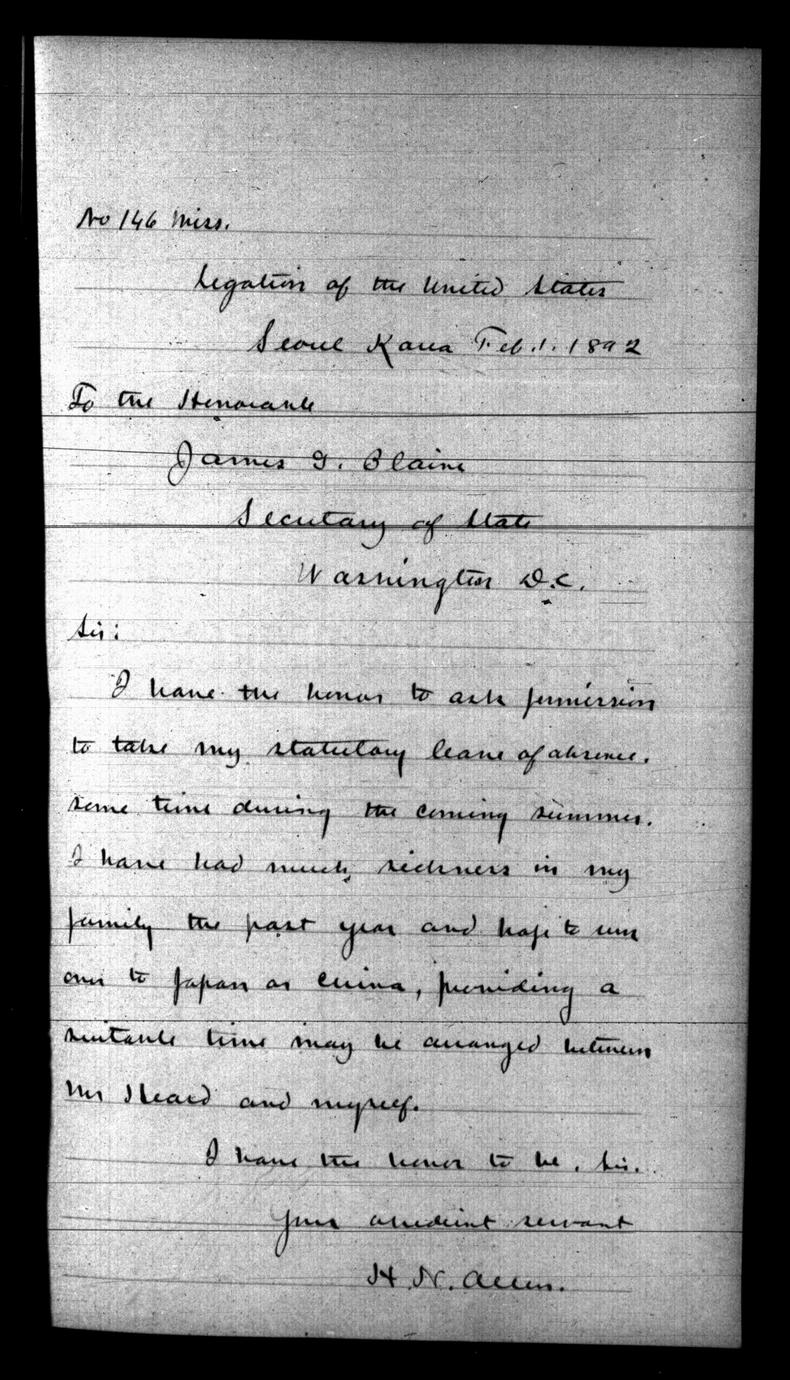 No 146 Miss.
Legation of the United States
Seoul Korea Feb. 1. 1892
To the Honorable
James G. Blaine
Secretary of State
Washington D.C.
Sir:
I have the honor to ask permission
to take my statutory leave of absence.
some time during the coming summer.
I have had much sickness in my
family the past year and hope to run
over to Japan or China, providing a
suitable time may be arranged between
Mr Heard and myself.
I have the honor to be, Sir.
Your obedient servant
H. N. Allen.